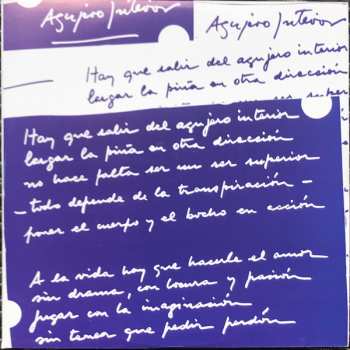 Agujero Interior
Agujero Interior
Hay que salir del agujero interior
largar la piña en otra dirección
Hay que salir del agujero interior
largar la piña en otra dirección
no hace falta ser un ser superior
— todo depende de la transpiración —
poner el cuerpo y el bocho en acción
A la vida hay que hacerle el amor
sin drama, con locura y pasión
jugar con la imaginación
sin tener que pedir perdón